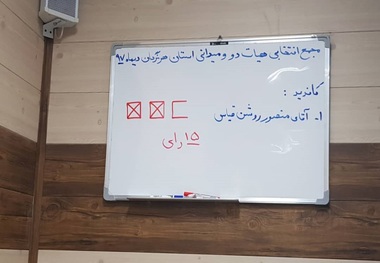 مجمع انتخابی هیات دو و میدانی استان هرمزگان دیماه ۹۷
کاندید :
۱- آقای منصور روشن قیاس
۱۵ رای